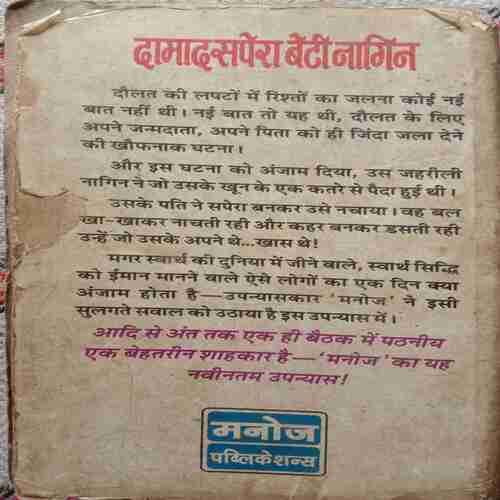 दामाद सपेरा बेटी नागिन
दौलत की लपटों में रिश्तों का जलना कोई नई
बात नहीं थी। नई बात तो यह थी, दौलत के लिए
अपने जन्मदाता, अपने पिता को ही जिंदा जला देने
की खौफनाक घटना।
और इस घटना को अंजाम दिया, उस जहरीली
नागिन ने जो उसके खून के एक कतरे से पैदा हुई थी।
उसके पति ने सपेरा बनकर उसे नचाया। वह बल
खा-खाकर नाचती रही और कहर बनकर डसती रही
उन्हें जो उसके अपने थे...खास थे!
मगर स्वार्थ की दुनिया में जीने वाले, स्वार्थ सिद्धि
को ईमान मानने वाले ऐसे लोगों का एक दिन क्या
अंजाम होता है—उपन्यासकार 'मनोज' ने इसी
सुलगते सवाल को उठाया है इस उपन्यास में।
आदि से अंत तक एक ही बैठक में पठनीय
एक बेहतरीन शाहकार है—'मनोज' का यह
नवीनतम उपन्यास!
मनोज
पब्लिकेशन्स